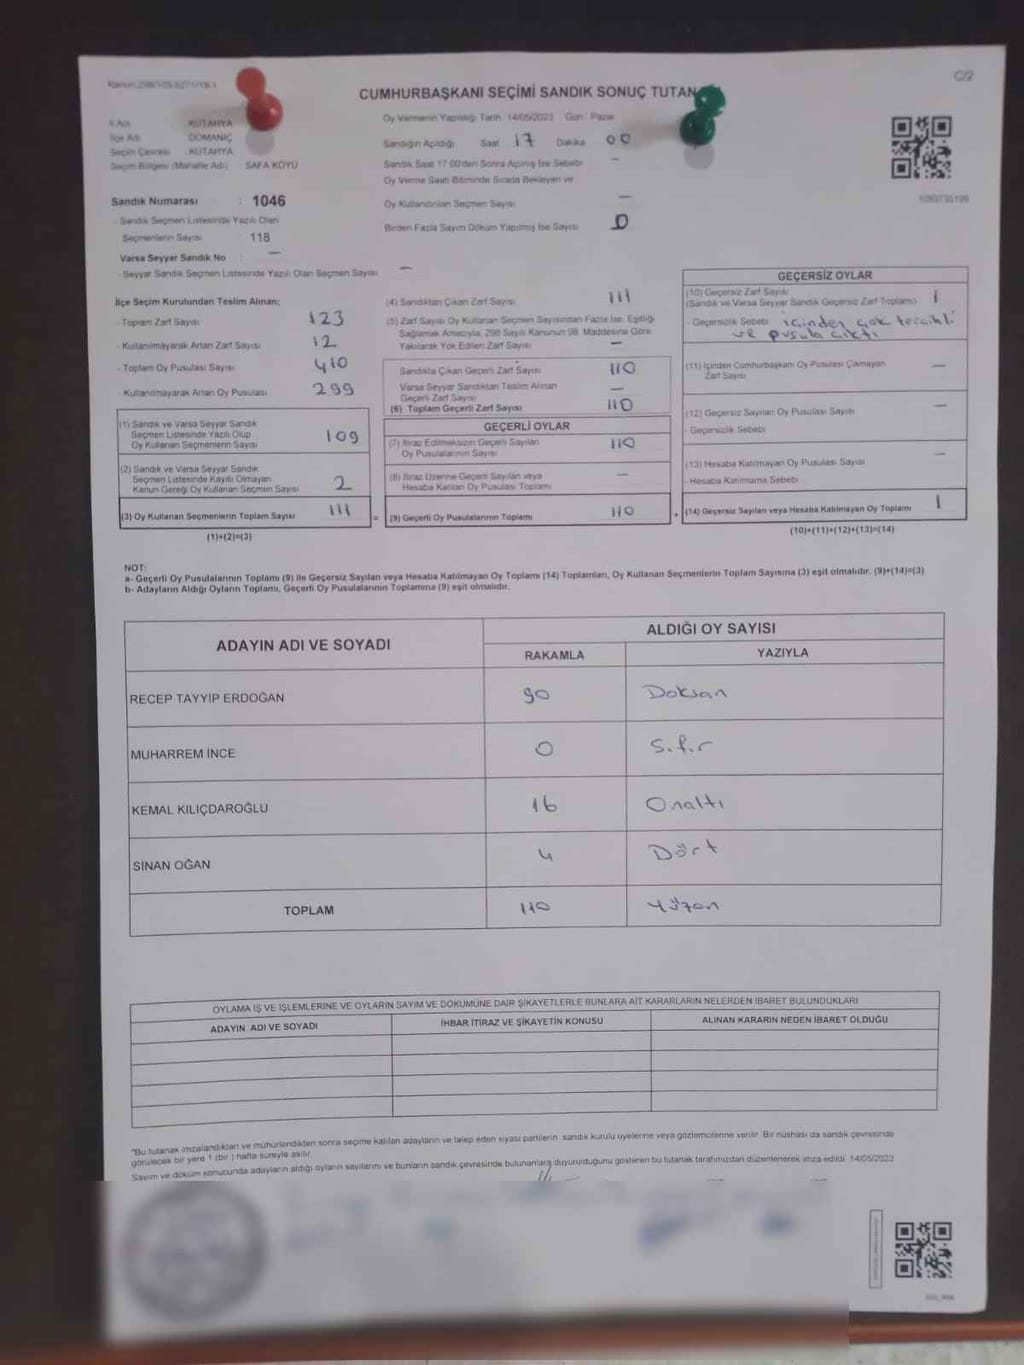 C/2
CUMHURBAŞKANI SEÇİMİ SANDIK SONUÇ TUTAN
İl Adı : KÜTAHYA
İlçe Adı : DOMANİÇ
Seçim Çevresi : KÜTAHYA
Seçim Bölgesi (Mahalle Adı) : SAFA KÖYÜ
Oy Vermenin Yapıldığı Tarih: 14/05/2023 Gün: Pazar
Sandığın Açıldığı Saat 17 Dakika 00
Sandık Saat 17:00'den Sonra Açılmış İse Sebebi –
Oy Verme Saati Bitiminde Sırada Bekleyen ve
Oy Kullandırılan Seçmen Sayısı –
Birden Fazla Sayım Döküm Yapılmış İse Sayısı 0
Sandık Numarası : 1046
- Sandık Seçmen Listesinde Yazılı Olan
Seçmenlerin Sayısı 118
Varsa Seyyar Sandık No : –
- Seyyar Sandık Seçmen Listesinde Yazılı Olan Seçmen Sayısı –
İlçe Seçim Kurulundan Teslim Alınan;
- Toplam Zarf Sayısı 123
- Kullanılmayarak Artan Zarf Sayısı 12
- Toplam Oy Pusulası Sayısı 410
- Kullanılmayarak Artan Oy Pusulası 299
(1) Sandık ve Varsa Seyyar Sandık
Seçmen Listesinde Yazılı Olup
Oy Kullanan Seçmenlerin Sayısı 109
(2) Sandık ve Varsa Seyyar Sandık
Seçmen Listesinde Kayıtlı Olmayan
Kanun Gereği Oy Kullanan Seçmen Sayısı 2
(3) Oy Kullanan Seçmenlerin Toplam Sayısı 111
(1)+(2)=(3)
(4) Sandıktan Çıkan Zarf Sayısı 111
(5) Zarf Sayısı Oy Kullanan Seçmen Sayısından Fazla İse, Eşitliği
Sağlamak Amacıyla, 298 Sayılı Kanunun 98. Maddesine Göre
Yakılarak Yok Edilen Zarf Sayısı –
Sandıkta Çıkan Geçerli Zarf Sayısı 110
Varsa Seyyar Sandıktan Teslim Alınan
Geçerli Zarf Sayısı –
(6) Toplam Geçerli Zarf Sayısı 110
GEÇERLİ OYLAR
(7) İtiraz Edilmeksizin Geçerli Sayılan
Oy Pusulalarının Sayısı 110
(8) İtiraz Üzerine Geçerli Sayılan veya
Hesaba Katılan Oy Pusulası Toplamı –
= (9) Geçerli Oy Pusulalarının Toplamı 110
GEÇERSİZ OYLAR
(10) Geçersiz Zarf Sayısı
(Sandık ve Varsa Seyyar Sandık Geçersiz Zarf Toplamı) 1
- Geçersizlik Sebebi: içinden çok tercihli
ve pusula çıktı
(11) İçinden Cumhurbaşkanı Oy Pusulası Çıkmayan
Zarf Sayısı –
(12) Geçersiz Sayılan Oy Pusulası Sayısı –
- Geçersizlik Sebebi
(13) Hesaba Katılmayan Oy Pusulası Sayısı –
- Hesaba Katılmama Sebebi
+ (14) Geçersiz Sayılan veya Hesaba Katılmayan Oy Toplamı 1
(10)+(11)+(12)+(13)=(14)
NOT:
a- Geçerli Oy Pusulalarının Toplamı (9) ile Geçersiz Sayılan veya Hesaba Katılmayan Oy Toplamı (14) Toplamları, Oy Kullanan Seçmenlerin Toplam Sayısına (3) eşit olmalıdır. (9)+(14)=(3)
b- Adayların Aldığı Oyların Toplamı, Geçerli Oy Pusulalarının Toplamına (9) eşit olmalıdır.
ADAYIN ADI VE SOYADI ALDIĞI OY SAYISI
RAKAMLA YAZIYLA
RECEP TAYYİP ERDOĞAN 90 Doksan
MUHARREM İNCE 0 Sıfır
KEMAL KILIÇDAROĞLU 16 Onaltı
SİNAN OĞAN 4 Dört
TOPLAM 110 Yüzon
OYLAMA İŞ VE İŞLEMLERİNE VE OYLARIN SAYIM VE DÖKÜMÜNE DAİR ŞİKAYETLERLE BUNLARA AİT KARARLARIN NELERDEN İBARET BULUNDUKLARI
ADAYIN ADI VE SOYADI İHBAR İTİRAZ VE ŞİKAYETİN KONUSU ALINAN KARARIN NEDEN İBARET OLDUĞU
"Bu tutanak imzalandıktan ve mühürlendikten sonra seçime katılan adayların ve talep eden siyasi partilerin sandık kurulu üyelerine veya gözlemcilerine verilir. Bir nüshası da sandık çevresinde
görülecek bir yere 1 (bir) hafta süreyle asılır.
Sayım ve döküm sonucunda adayların aldığı oyların sayılarını ve bunların sandık çevresinde bulunanlara duyurulduğunu gösteren bu tutanak tarafımızdan düzenlenerek imza edildi. 14/05/2023